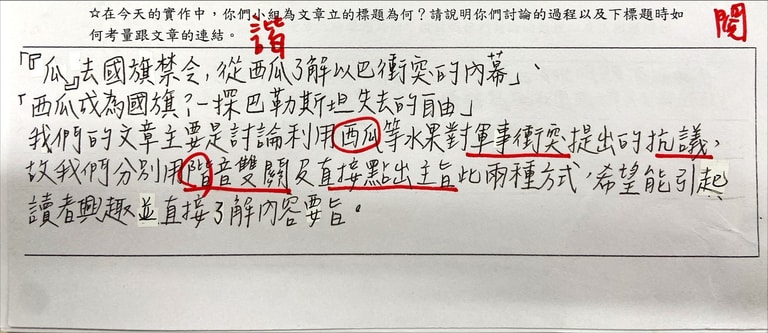 ☆在今天的實作中，你們小組為文章立的標題為何？請說明你們討論的過程以及下標題時如
何考量跟文章的連結。
諧
閱
「『瓜』去國旗禁令，從西瓜了解以巴衝突的內幕」、
「西瓜成為國旗？一探巴勒斯坦失去的自由」
我們的文章主要是討論利用西瓜等水果對軍事衝突提出的抗議，
故我們分別用階音雙關及直接點出主旨此兩種方式，希望能引起
讀者興趣並直接了解內容要旨。